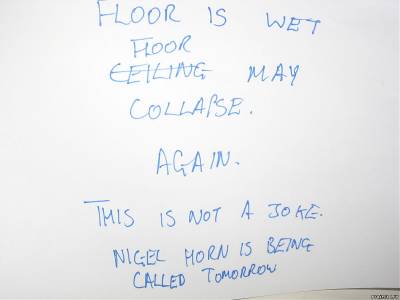 FLOOR IS WET
FLOOR
CEILING MAY
COLLAPSE.
AGAIN.
THIS IS NOT A JOKE.
NIGEL HORN IS BEING
CALLED TOMORROW